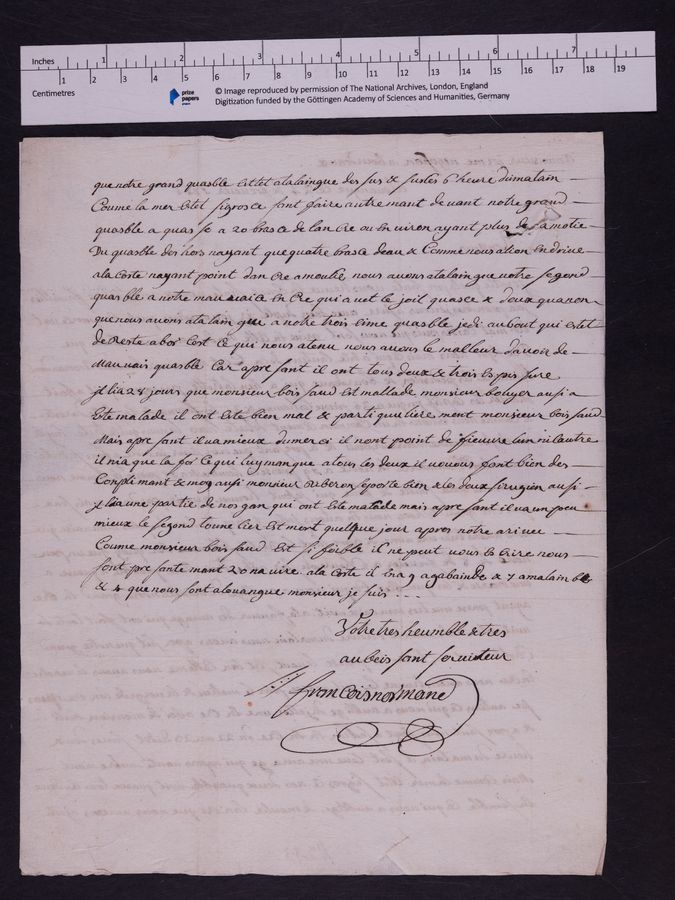 Inches 1 2 3 4 5 6 7
1 2 3 4 5 6 7 8 9 10 11 12 13 14 15 16 17 18 19
Centimetres
prize papers
© Image reproduced by permission of The National Archives, London, England
Digitization funded by the Göttingen Academy of Sciences and Humanities, Germany
que notre grand quasble est tet atalaingue des sus & fustes 6 heure dumatain
Coume la mer Estet sigrosce sont faire autremant devant notre grand
quasble a quas se a 20 brasce de lan cre ou En viron ayant plus de la motie
Du quasble de hors nayant que quatre brasce deau & Comme nous ation En drive
ala Coste nayant point dan cre amoulie nous avons atalaingue notre segond
quasble a notre mauvaice En Cre qui a vet le joit quasce & deux quanon
que nous avons atalain gue a notre trois sime quasble jedi au bout qui Estet
de Reste a bor Cest Ce qui nous atenu nous avons le malleur davoir de
Mauvais quasble Car apre sant il ont tous deux & trois Espis sure
il lia 28 jours que monsieur bois faud Est mallade monsieur bouyer ausi a
Este malade il ont Este bien mal & parti quuliere ment monsieur bois faud
Mais apre sant il va mieux dumerci il nont point de fievure lun ni lautre
il nia que la for Ce qui luy manque atous les deux il vouous font bien des
Conpli mant & moy ausi monsieur Orberon se porte bien & les deux siruzien ausi
il lia une partie de nos gan qui ont Este malade mais apre sant il va un peu
mieux le segond toune lier Est mort quelque jour apres notre arivee
Coume monsieur bois faud Est si foible il ne peut vous Es crire nous
sont pre sante mant 20 navire ala Coste il lia 9 agabainde & 7 amalain be
& 4 que nous sont alouangue monsieur je suis
Votre tres heumble & tres
au beis sant servuteur
francois normand